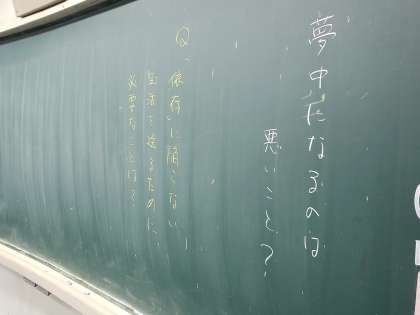 夢中になるのは
悪いこと?
Q.「依存」に陥らない
生活を送るために、
必要なことは?